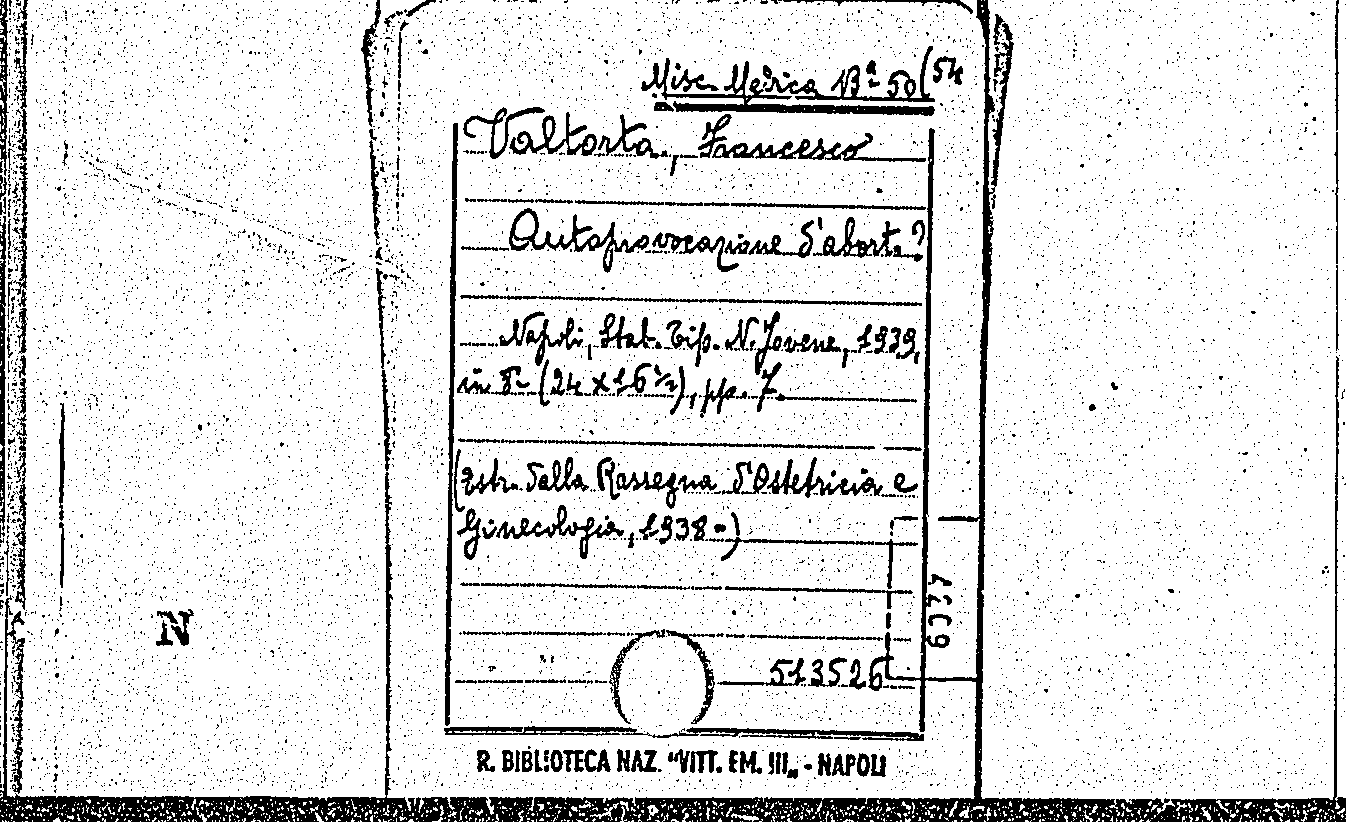 Misc. Medica Bª 50(54
Valtorta, Francesco
Autoprovocazione d'aborto?
Napoli, Stab. Tip. N. Jovene, 1939,
in 8- (24 x 16 ½), pp. 7.
(Estr. dalla Rassegna d'Ostetricia e
Ginecologia, 1938-)
6077
513526
R. BIBLIOTECA NAZ. "VITT. EM. III„ - NAPOLI
N